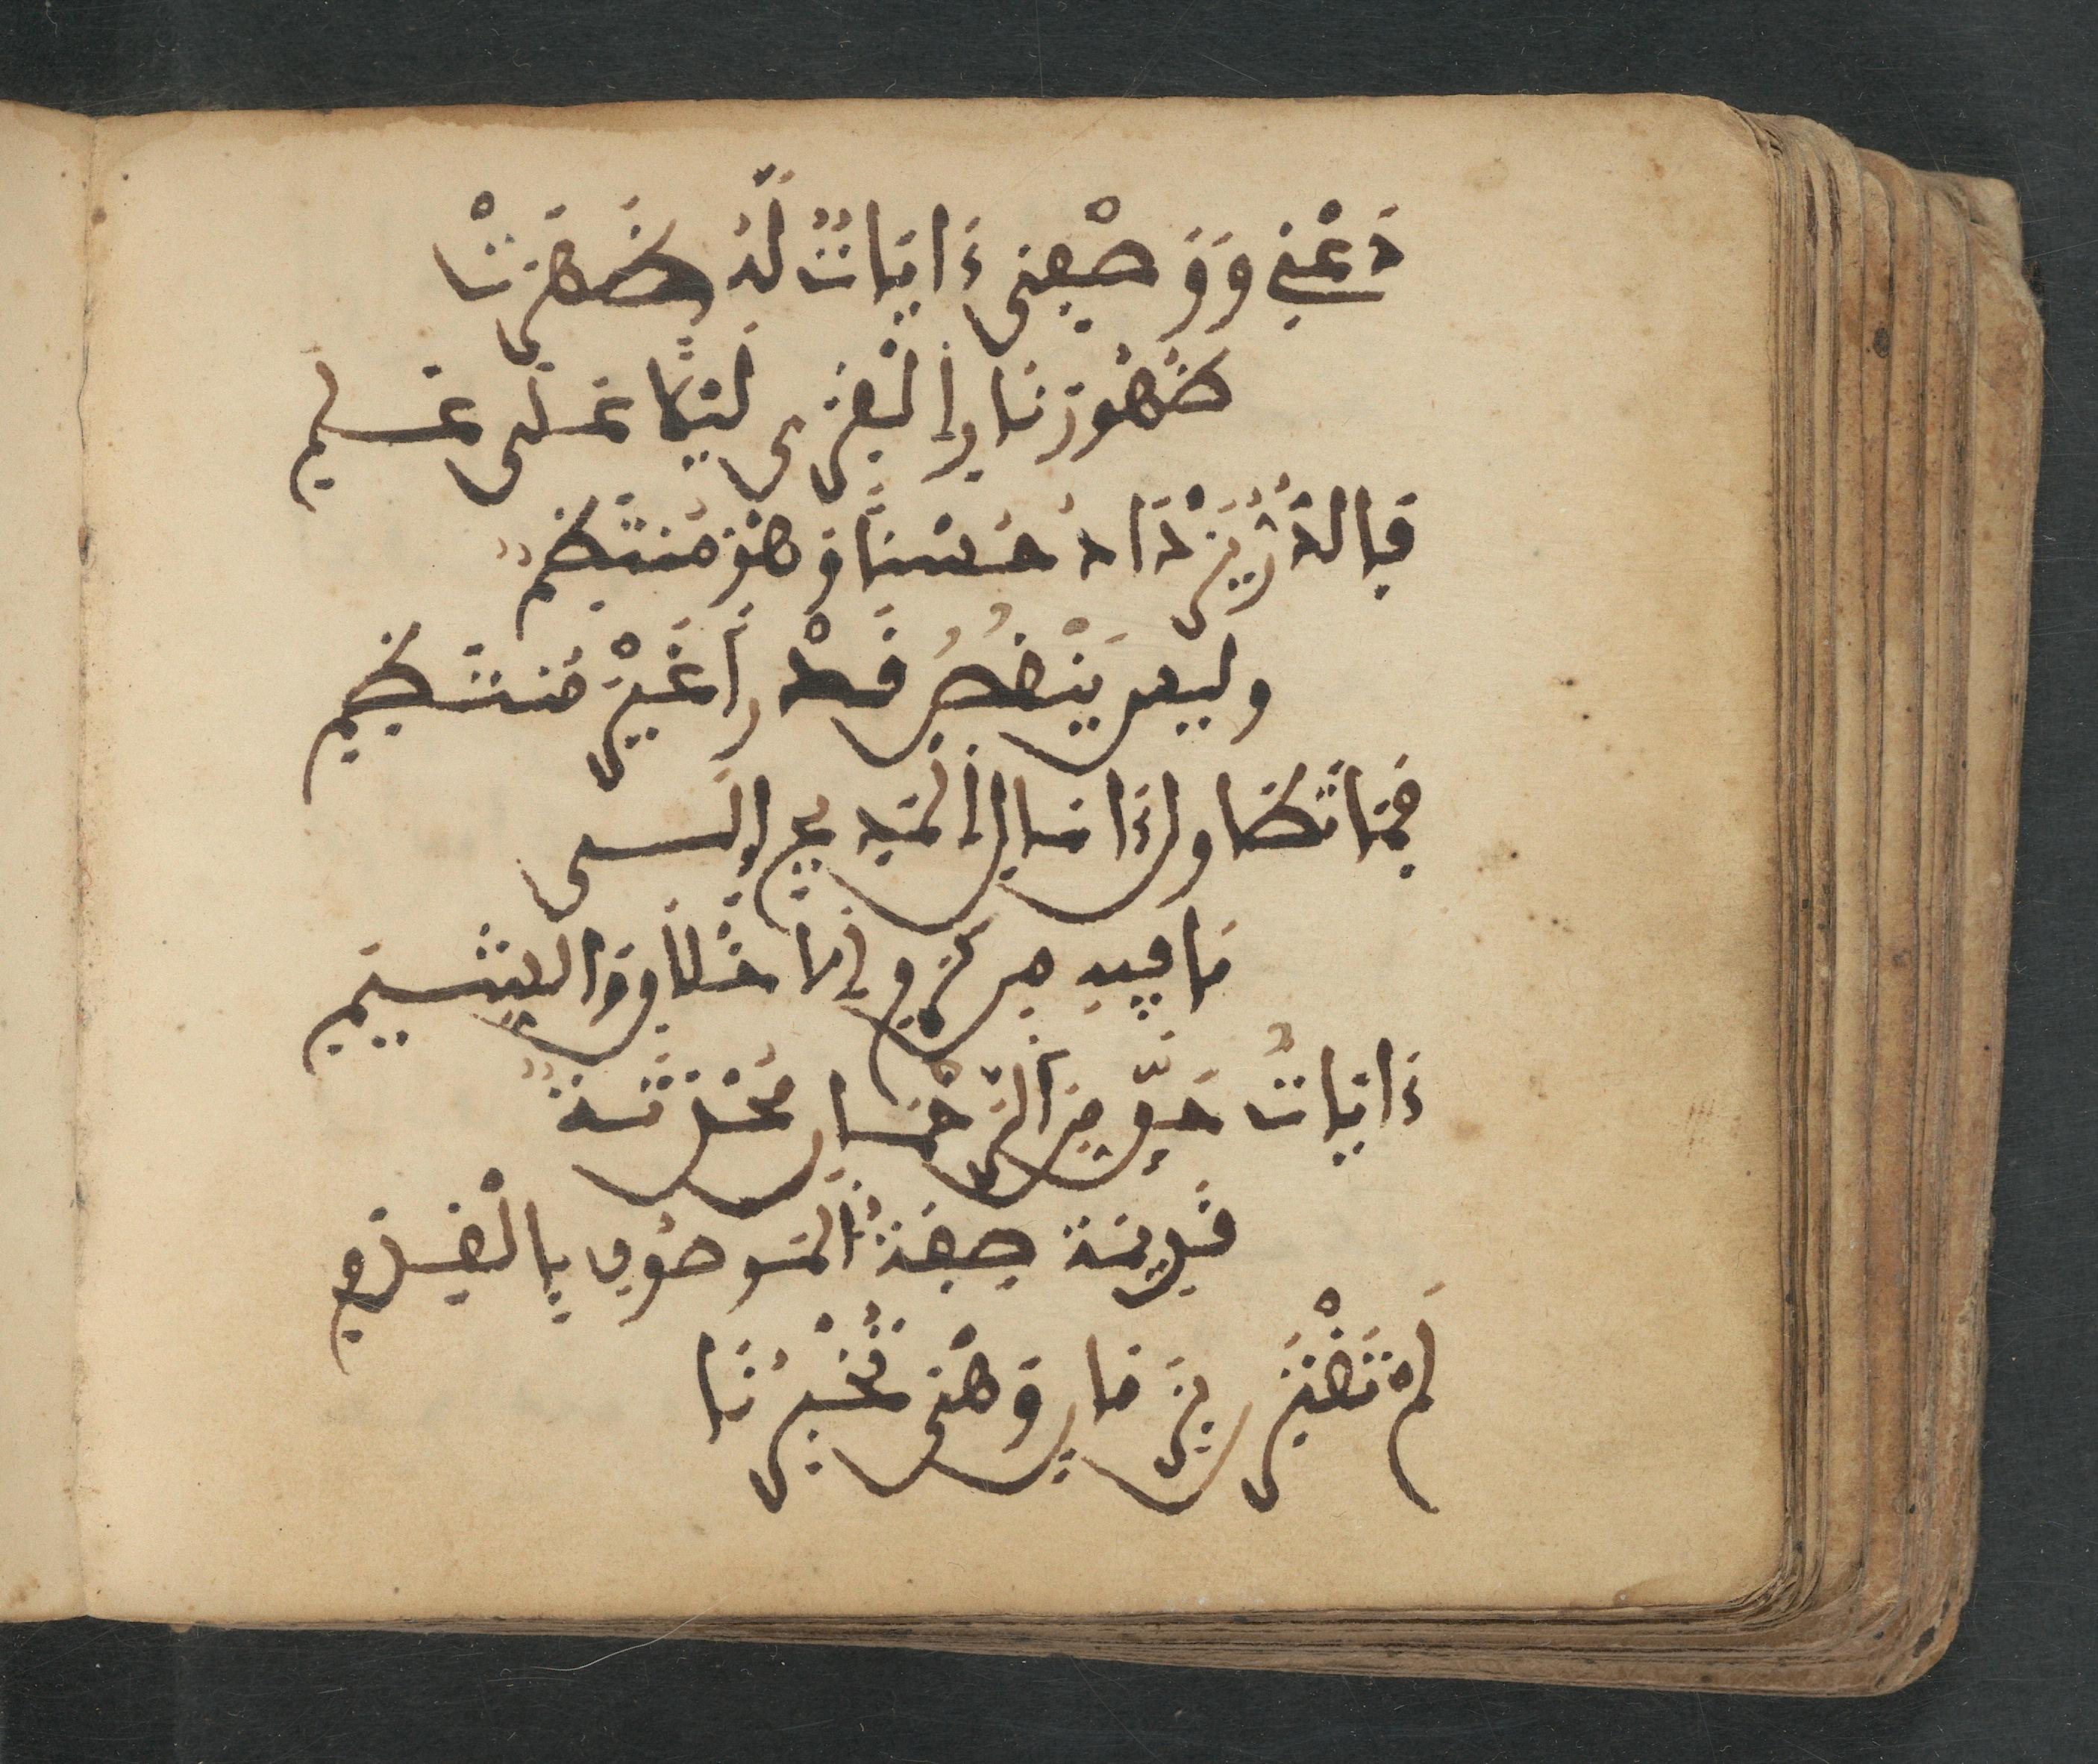 دَعْنِي وَوَصْفِي ءَايَاتٌ لَّهُ ظَهَرَتْ
ظُهُورَ نَارِ الْقِرَى لَيْلًا عَلَى عَلَمِ
فَالدُّرُّ يَزْدَادُ حُسْنًا وَهْوَ مُنْتَظِمٌ
وليس يَنْقُصُ قَدْرًا غَيْرَ مُنْتَظِمِ
فَمَا تَطَاوُلُ ءَامَالِ الْمَدِيحِ إِلَى
مَا فِيهِ مِن كَرَمِ الْأَخْلَاقِ وَالشِّيَمِ
ءَايَاتُ حَقٍّ مِنَ الرَّحْمَانِ مُحْدَثَةٌ
قَدِيمَة صِفَةُ الْمَوْصُوفِ بِالْقِدَمِ
لَمْ تَقْتَرِن بِزَمَانٍ وَهْيَ تُخْبِرُنَا